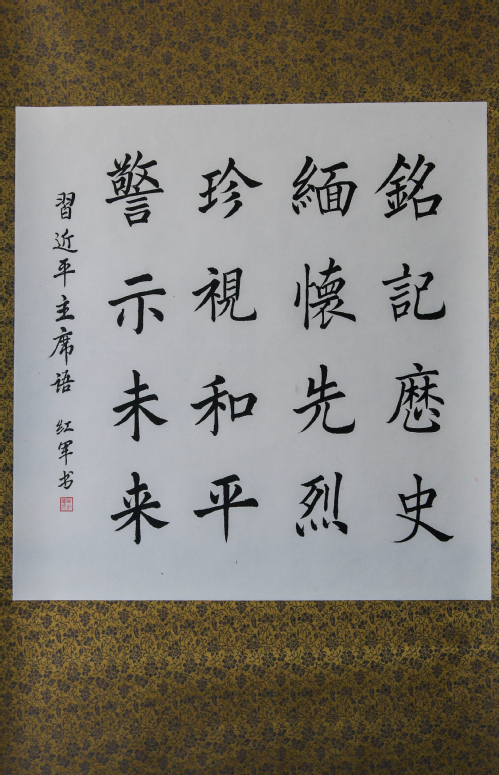 銘記歷史
緬懷先烈
珍視和平
警示未来
習近平主席语 红军书